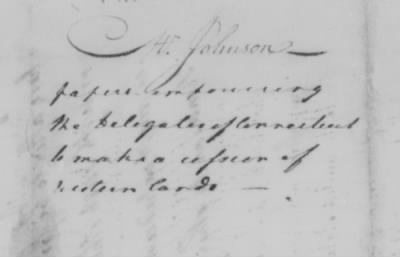 Mr. Johnson
papers impowering
the Delegates of Connecticut
to make a cession of
western Lands —